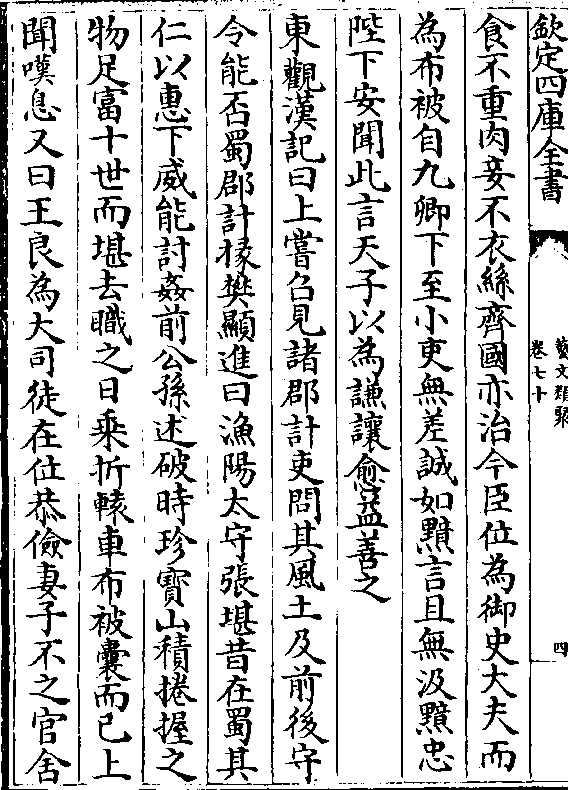 欽定四庫全書
藝文類聚
卷七十
四
食不重肉妾不衣絲齊國亦治今臣位為御史大夫而
為布被自九卿下至小吏無差誠如黯言且無汲黯忠
陛下安聞此言天子以為謙讓愈益善之
東觀漢記曰上嘗召見諸郡計吏問其風土及前後守
令能否蜀郡計掾樊顯進曰漁陽太守張堪昔在蜀其
仁以惠下威能討姦前公孫述破時珍寶山積捲握之
物足富十世而堪去職之日乗折轅車布被囊而已上
聞嘆息又曰王良為大司徒在位恭儉妻子不之官舍